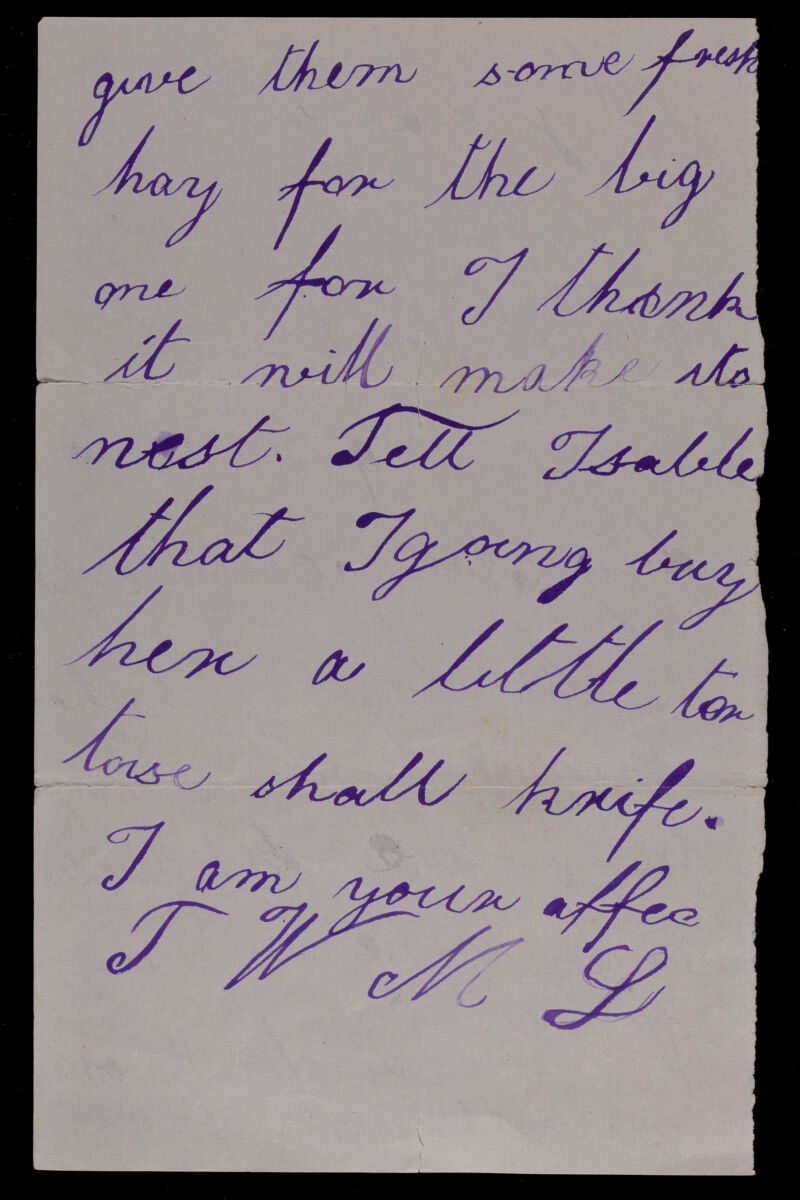 give them some fresh
hay for the big
one for I think
it will make its
nest. Tell Isable
that I going buy
her a little tor
toise shall knife.
I am your affec
T W M L